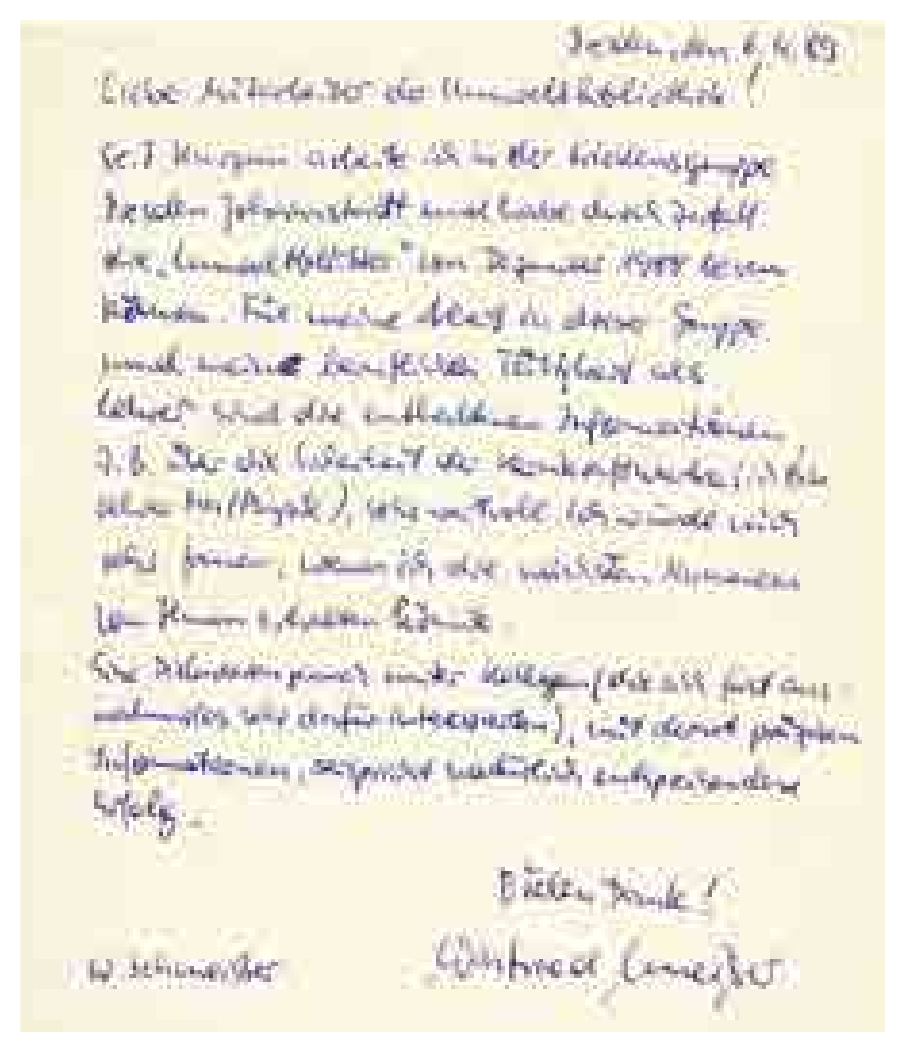 Dresden, den 89
Liebe Mitarbeiter der Umweltbibliothek!
Seit kurzem arbeite ich in der Friedensgruppe
Dresden Johannstadt und habe durch Zufall
die „Umweltblätter" vom Dezember 1988 lesen
können. Für meine Arbeit in dieser Gruppe
und meine beruflichen Tätigkeit als
Lehrer sind die enthaltenen Informationen
z.B. über die Sicherheit der Kernkraftwerke (ich
Ma/Physik), sehr wertvoll. Ich würde mich
sehr freuen, wenn ich die nächsten Nummern
von Ihnen erhalten könnte.
Eine unter Kollegen (die sich fast aus-
nahmslos sehr dafür interessieren), mit derart präzisen
Informationen, verspricht natürlich entsprechenden
Erfolg.
Vielen Dank!
W. Schmeißer